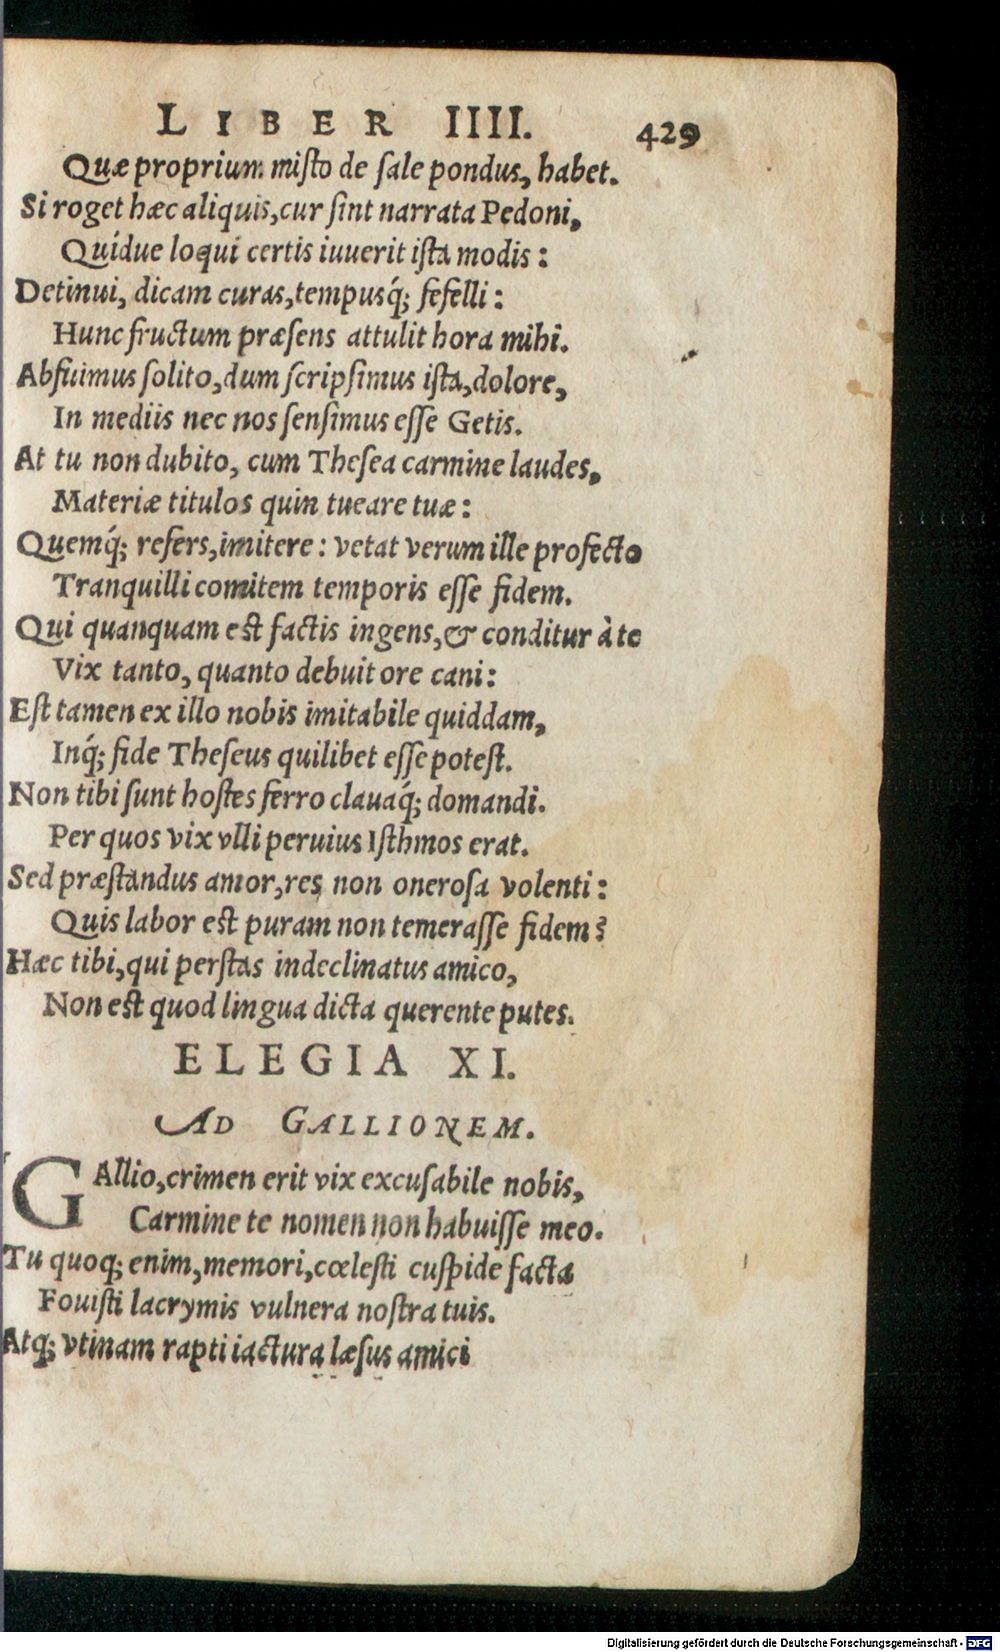 LIBER IIII. 429
Quæ proprium misto de sale pondus, habet.
Si roget hæc aliquis, cur sint narrata Pedoni,
Quidue loqui certis iuuerit ista modis:
Detinui, dicam curas, tempusq́; fefelli:
Hunc fructum præsens attulit hora mihi.
Abfuimus solito, dum scripsimus ista, dolore,
In mediis nec nos sensimus esse Getis.
At tu non dubito, cum Thesea carmine laudes,
Materiæ titulos quin tueare tuæ:
Quemq́; refers, imitere: vetat verum ille profecto
Tranquilli comitem temporis esse fidem.
Qui quanquam est factis ingens, & conditur à te
Vix tanto, quanto debuit ore cani:
Est tamen ex illo nobis imitabile quiddam,
Inq́; fide Theseus quilibet esse potest.
Non tibi sunt hostes ferro clauaq́; domandi.
Per quos vix vlli peruius Isthmos erat.
Sed præstandus amor, res non onerosa volenti:
Quis labor est puram non temerasse fidem?
Hæc tibi, qui perstas indeclinatus amico,
Non est quod lingua dicta querente putes.
ELEGIA XI.
AD GALLIONEM.
GAllio, crimen erit vix excusabile nobis,
Carmine te nomen non habuisse meo.
Tu quoq; enim, memori, cœlesti cuspide facta
Fouisti lacrymis vulnera nostra tuis.
Atq; vtinam rapti iactura læsus amici
Digitalisierung gefördert durch die Deutsche Forschungsgemeinschaft - DFG